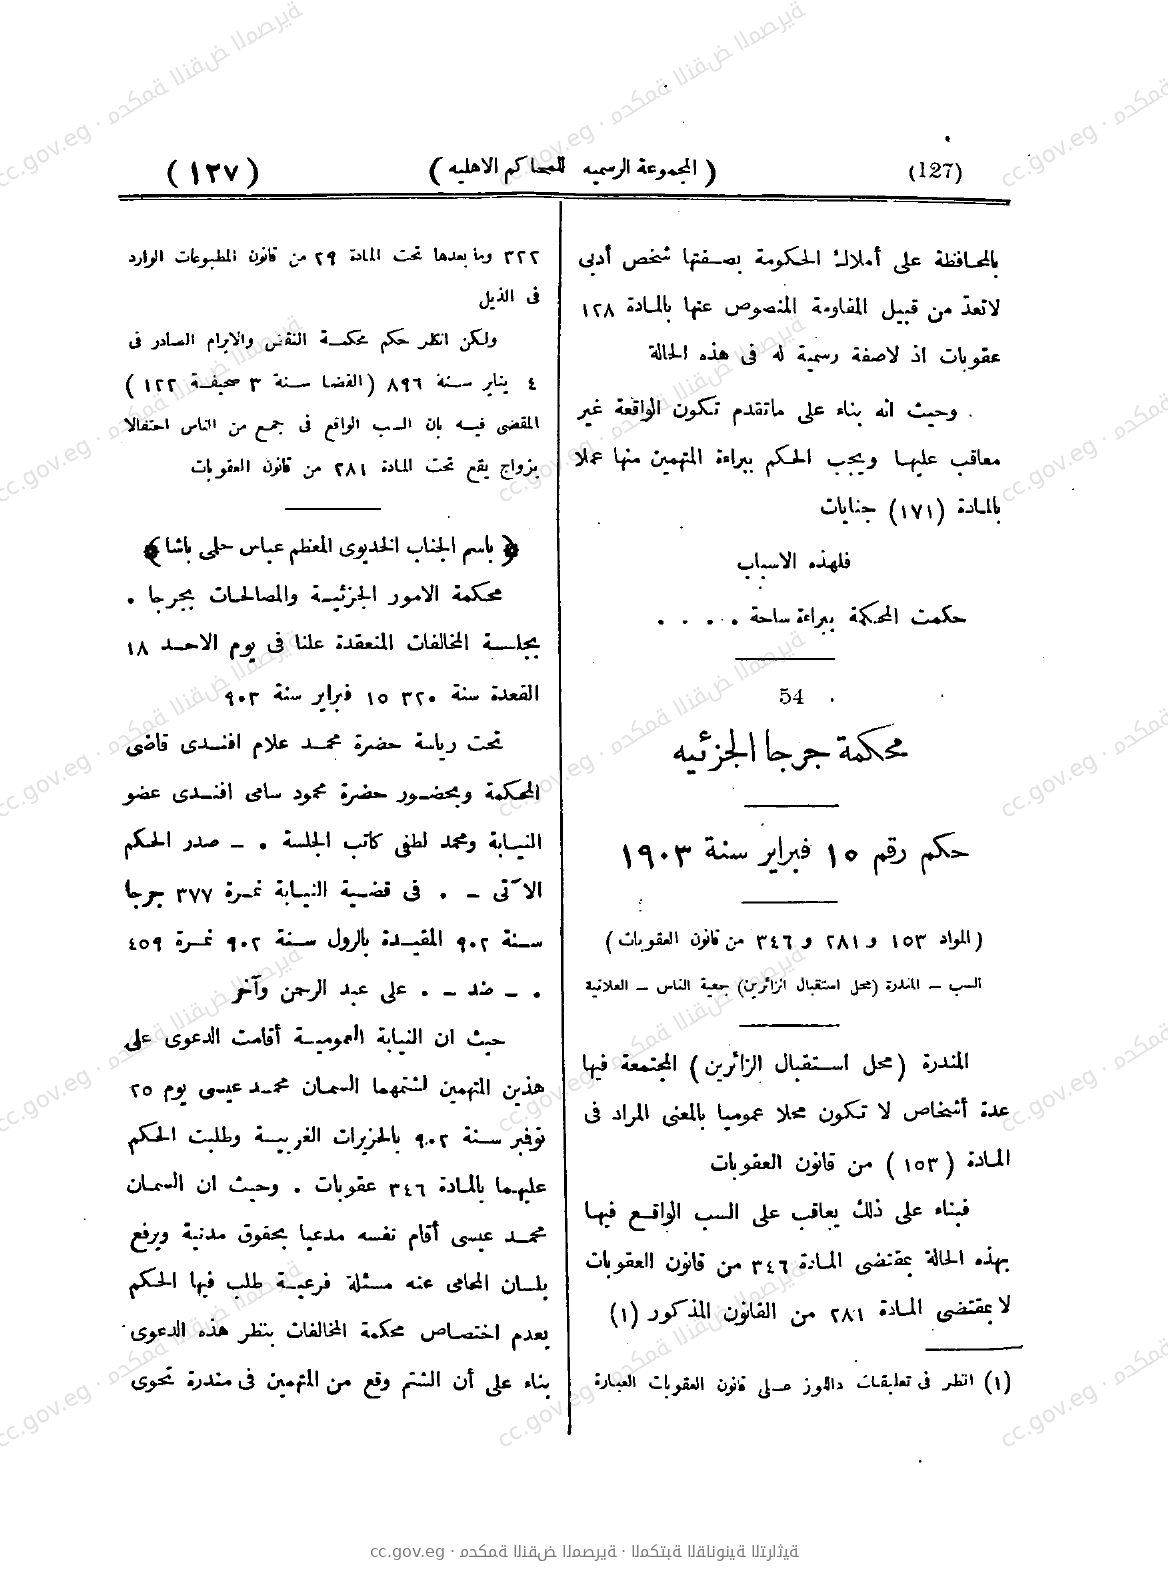 (127)
( المجموعة الرسميه للمحاكم الاهليه )
( ١٢٧ )
بالمحافظة على أملاك الحكومة بصفتها شخص أدبى
لاتعدّ من قبيل المقاومة المنصوص عنها بالمادة ١٢٨
عقوبات اذ لاصفة رسمية له فى هذه الحالة
وحيث انه بناء على ماتقدم تكون الواقعة غير
معاقب عليها ويجب الحكم ببراءة المتهمين منها عملا
بالمادة (١٧١) جنايات
فلهذه الاسباب
حكمت المحكمة ببراءة ساحة . . . .
54
محكمة جرجا الجزئيه
حكم رقم ١٥ فبراير سنة ١٩٠٣
( المواد ١٥٣ و ٢٨١ و ٣٤٦ من قانون العقوبات )
السب – المندرة (محل استقبال الزائرين) جمعية الناس – العلانية
المندرة (محل استقبال الزائرين) المجتمعة فيها
عدة أشخاص لا تكون محلا عموميا بالمعنى المراد فى
المادة (١٥٣) من قانون العقوبات
فبناء على ذلك يعاقب على السب الواقع فيها
بهذه الحالة بمقتضى المادة ٣٤٦ من قانون العقوبات
لا بمقتضى المادة ٢٨١ من القانون المذكور (١)
(١) انظر فى تعليقات داللوز على قانون العقوبات العبارة
٣٢٢ وما بعدها تحت المادة ٢٩ من قانون المطبوعات الوارد
فى الذيل
ولكن انظر حكم محكمة النقض والابرام الصادر فى
٤ يناير سنة ٨٩٦ (القضا سنة ٣ صحيفة ١٢٢)
المقضى فيه بان السب الواقع فى جمع من الناس احتفالا
بزواج يقع تحت المادة ٢٨١ من قانون العقوبات
﴿ باسم الجناب الخديوى المعظم عباس حلمى باشا ﴾
محكمة الامور الجزئية والمصالحات بجرجا .
بجلسة المخالفات المنعقدة علنا فى يوم الاحد ١٨
القعدة سنة ٣٢٠ ١٥ فبراير سنة ٩٠٣
تحت رياسة حضرة محمد علام افندى قاضى
المحكمة وبحضور حضرة محمود سامى افندى عضو
النيابة ومحمد لطفى كاتب الجلسة . – صدر الحكم
الآتى – . فى قضية النيابة نمرة ٣٧٧ جرجا
سنة ٩٠٢ المقيدة بالرول سنة ٩٠٢ نمرة ٤٥٩
. – ضد – . على عبد الرحمن وآخر
حيث ان النيابة العمومية أقامت الدعوى على
هذين المتهمين لشتمهما السمان محمد عيسى يوم ٢٥
نوفبر سنة ٩٠٢ بالحزيرات الغربية وطلبت الحكم
عليهما بالمادة ٣٤٦ عقوبات . وحيث ان السمان
محمد عيسى أقام نفسه مدعيا بحقوق مدنية ويرفع
بلسان المحامى عنه مسئلة فرعية طلب فيها الحكم
بعدم اختصاص محكمة المخالفات بنظر هذه الدعوى
بناء على أن الشتم وقع من المتهمين فى مندرة تحوى
cc.gov.eg · محكمة النقض المصرية · المكتبة القانونية التراثية